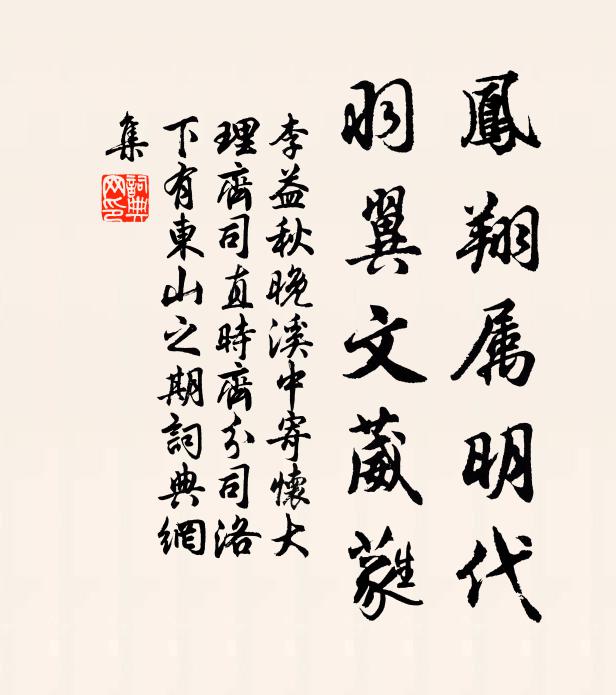 鳳翔属明代
羽翼文葳蕤
李益秋晚溪中寄懷大
理齊司直時齊分司洛
下有東山之期詞典網
集
詞典
网印